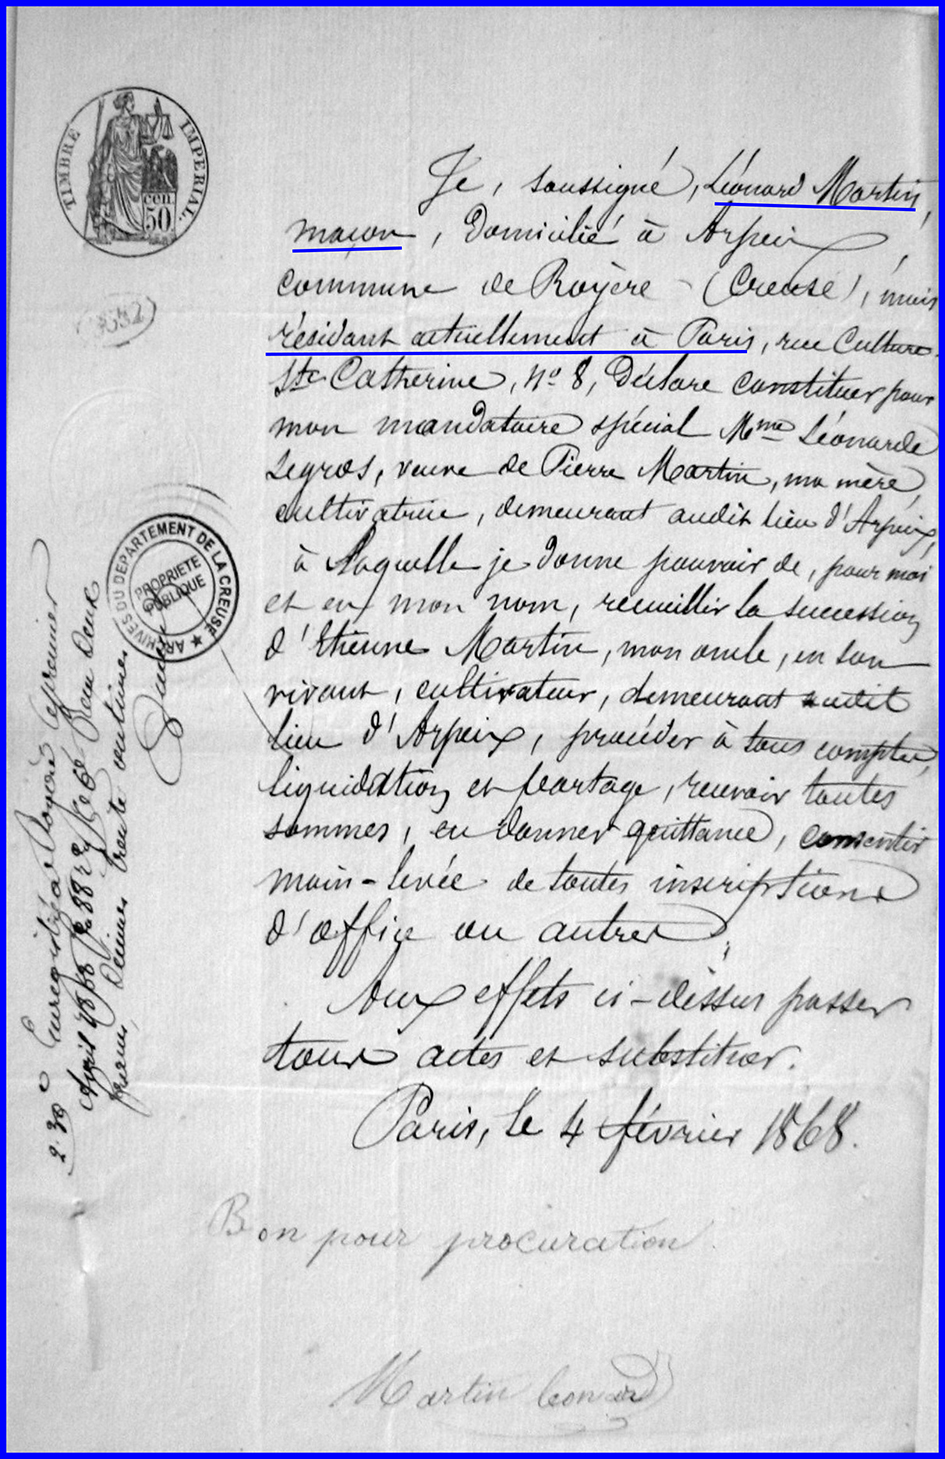 TIMBRE IMPERIAL
50 cen.
Je, soussigné, Léonard Martin,
maçon, domicilié à Arpeix
commune de Royère (Creuse), mais
résidant actuellement à Paris, rue Culture
Ste Catherine, No 8, déclare constituer pour
mon mandataire spécial Mme Léonarde
Legros, veuve de Pierre Martin, ma mère,
cultivatrice, demeurant audit lieu d'Arpeix,
à laquelle je donne pouvoir de, pour moi
et en mon nom, recueillir la succession
d'Etienne Martin, mon oncle, en son
vivant, cultivateur, demeurant audit
lieu d'Arpeix, procéder à tous comptes,
liquidation et partage, recevoir toutes
sommes, en donner quittance, consentir
main-levée de toutes inscriptions
d'office ou autres.
Aux effets ci-dessus passer
tous actes et substituer.
Paris, le 4 février 1868.
Bon pour procuration
Martin leonard
ARCHIVES DU DEPARTEMENT DE LA CREUSE ★
PROPRIETE
PUBLIQUE
2.30
Enregistré à Royère le premier
Avril 1868 deux
francs, décimes trente centimes